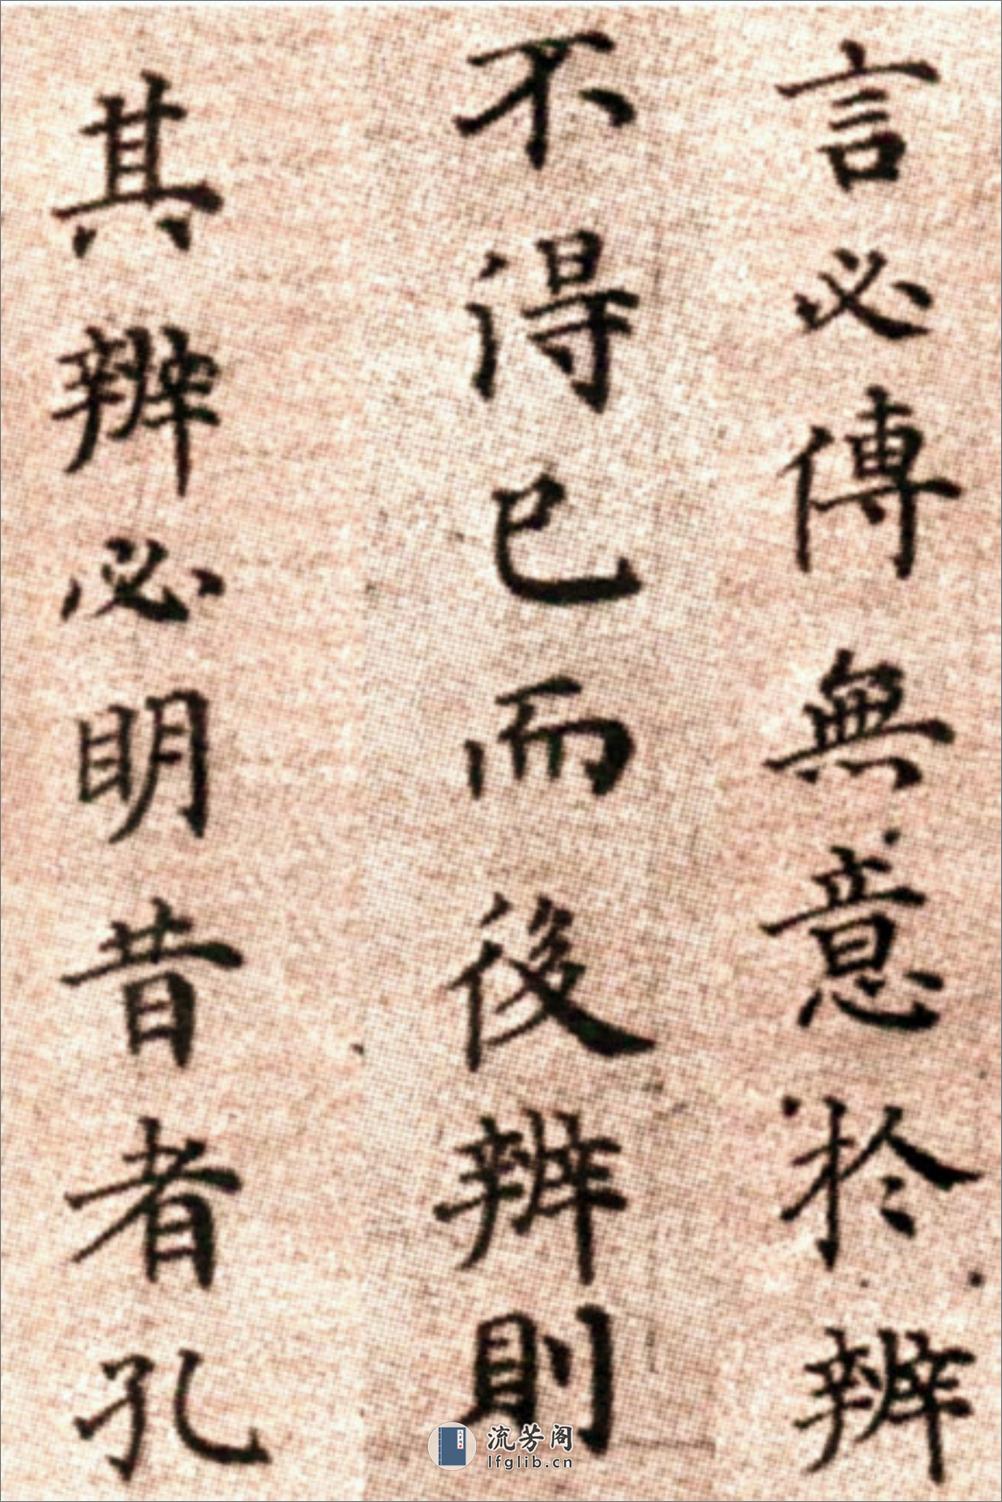 言必傳無意於辨
不得已而後辨則
其辨必明昔者孔
流芳阁
lfglib.cn